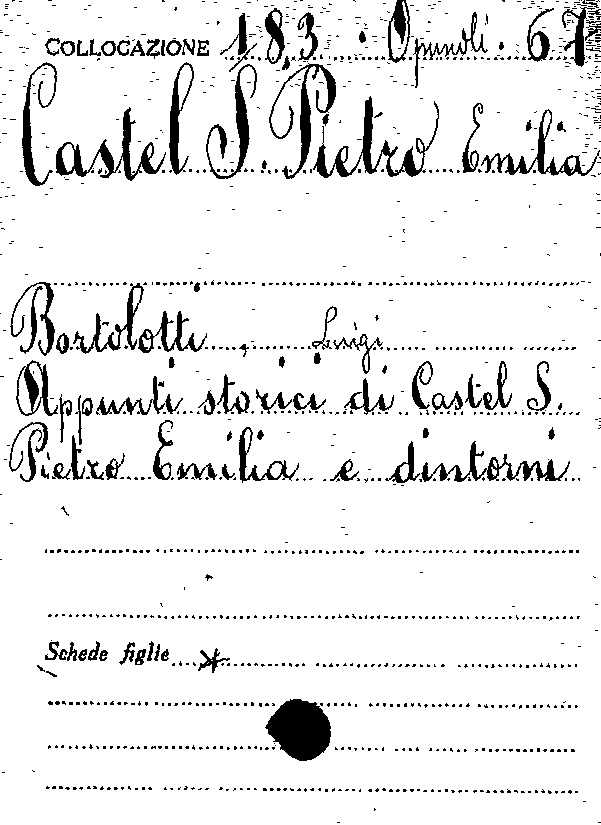 COLLOCAZIONE 183 · Opuscoli · 67
Castel S. Pietro Emilia
Bortolotti, Luigi
Appunti storici di Castel S.
Pietro Emilia e dintorni
Schede figlie *